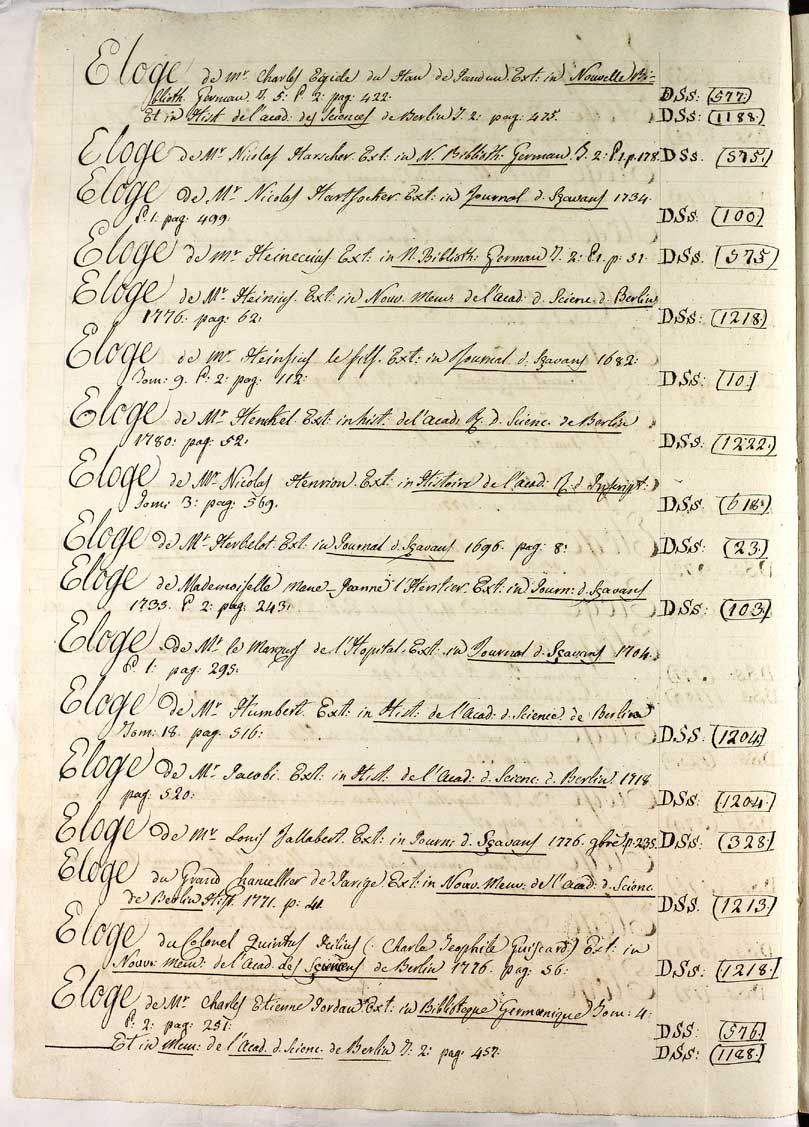 Eloge de Mr. Charles Egide du Han de Jandun. Ext: in Nouvelle Bi-
blioth. German. T. 5: P. 2: pag: 422. D.S.s: (577.)
Et in Hist de l'acad: des Sciences de Berlin T. 2: pag: 475. D.S.s: (1188.)
Eloge de Mr. Nicolas Harscher. Ext: in N. Biblioth: German. T. 2: P. 1. p. 178. D.S.s. (575.)
Eloge de Mr. Nicolas Hartsocker. Ext: in Journal d. Sçavans 1734.
P. 1. pag: 499. D.S.s: (100)
Eloge de Mr. Heineccius Ext: in N. Biblioth: German T. 2: P. 1. p. 51. D.S.s. (575)
Eloge de Mr. Heinius. Ext: in Nouv. Mem: de l'acad: d. Scienc. d. Berlin
1776. pag: 62. D.S.s: (1218.)
Eloge de Mr. Heinsius le fils. Ext: in Journal d. Sçavans 1682:
Tom: 9. P. 2: pag: 112: D.S.s: (10.)
Eloge de Mr. Henckel Ext: in hist. de l'acad: R. d. Scienc. de Berlin
1780: pag: 52. D.S.s: (1222.)
Eloge de Mr. Nicolas Henrion. Ext: in Histoire de l'acad: R. d. Inscript:
Tom: 3: pag: 569. D.S.s: (618.)
Eloge de Mr. Herbelot. Ext: in Journal d. Sçavans 1696. pag: 8: D.S.s: (23.)
Eloge de Mademoiselle Marie-Jeanne l'Heritier. Ext: in Journ: d. Sçavans
1735. P. 2: pag: 243. D.S.s: (103)
Eloge de Mr. le Marquis de l'Hopital. Ext. in Journal d. Sçavans 1704.
P. 1: pag: 295.
Eloge de Mr. Humbert. Ext: in Hist: de l'Acad: d. Scienc: de Berlin
Tom: 18. pag: 516: D.S.s: (1204)
Eloge de Mr. Jacobi. Ext: in Hist: de l'Acad: d. Scienc. d. Berlin. T. 18
pag: 520: D.S.s: (1204.)
Eloge de Mr. Louis Jallabert. Ext: in Journ: d. Sçavans 1776. p. 235. D.S.s: (328.)
Eloge du Grand Chancellier de Jarige Ext: in Nouv. Mem: de l'acad: d. Scienc.
de Berlin Hist. 1771. p: 41. D.S.s: (1213.)
Eloge du Colonel Quintus Icilius (: Charle Teophile Guiscard:) Ext: in
Nouv: Mem: de l'Acad: des Sciences de Berlin 1776. pag: 56: D.S.s: (1218.)
Eloge de Mr. Charles Etienne Jordan Ext: in Biblioteque Germanique Tom: 4:
P. 2: pag: 251: D.S.s: (576.)
Et in Mem: de l'Acad: d. Scienc: de Berlin T: 2: pag: 457. D.S.s: (1188.)